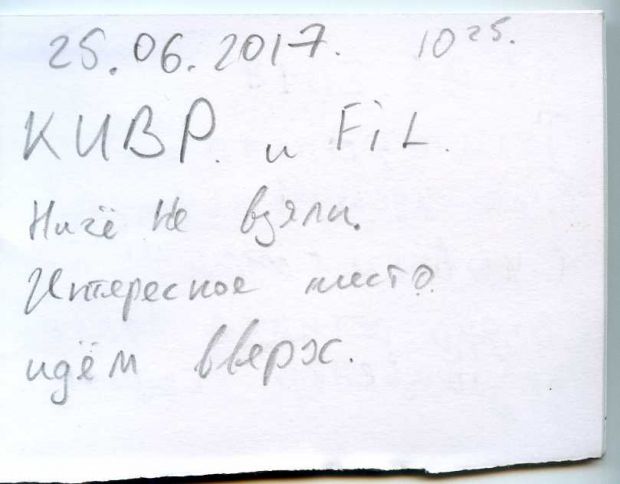 25.06.2017. 10 25.
КИВР. и FiL.
Ничё не взяли.
Интересное место
идём вверх.